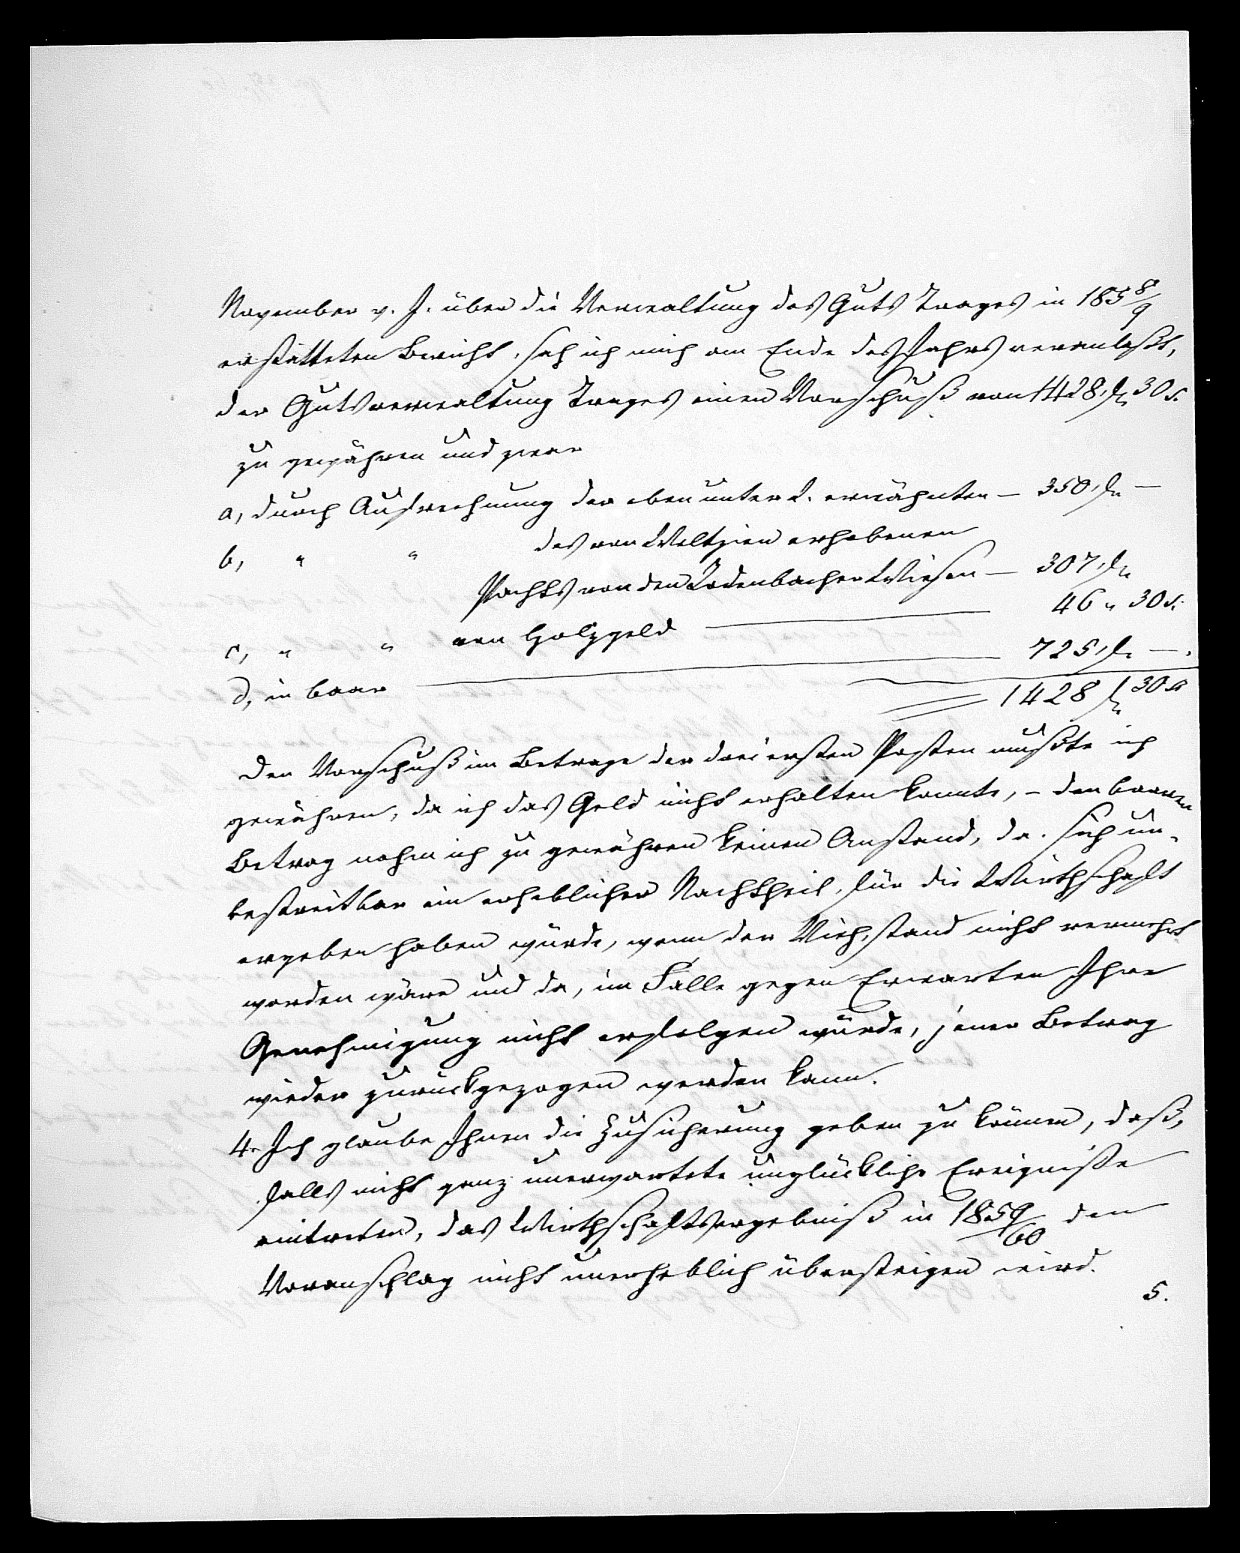 November v. J. über die Verwaltung des Guts Trages in 1858/9
erstatteten Bericht, sah ich mich am Ende des Jahrs veranlaßt,
der Gutsverwaltung Trages einen Vorschuß von 1428 fl 30 x.
zu gewähren und zwar
a, durch Aufrechnung der oben unter 2. erwähnten — 350 fl —
b, " " des von Weltzien erhobenen
Pachts von den Rodenbacher Wiesen — 307 fl
c, " " von Holzgeld — 46 " 30 x.
d, in baar — 725 fl —.
1428 fl 30 x
Den Vorschuß im Betrage der drei ersten Posten mußte ich
gewähren, da ich das Geld nicht erhalten konnte, – den baaren
Betrag nahm ich zu gewähren keinen Anstand, da sich un-
bestreitbar ein erheblicher Nachtheil für die Wirthschaft
ergeben haben würde, wenn der Viehstand nicht vermehrt
worden wäre und da, im Falle gegen Erwarten Ihre
Genehmigung nicht erfolgen würde, jener Betrag
wieder zurückgezogen werden kann.
4. Ich glaube Ihnen die Zusicherung geben zu können, daß,
falls nicht ganz unerwartete unglückliche Ereigniße
eintreten, das Wirthschaftsergebniß in 1859/60 den
Voranschlag nicht unerheblich übersteigen wird.
5.